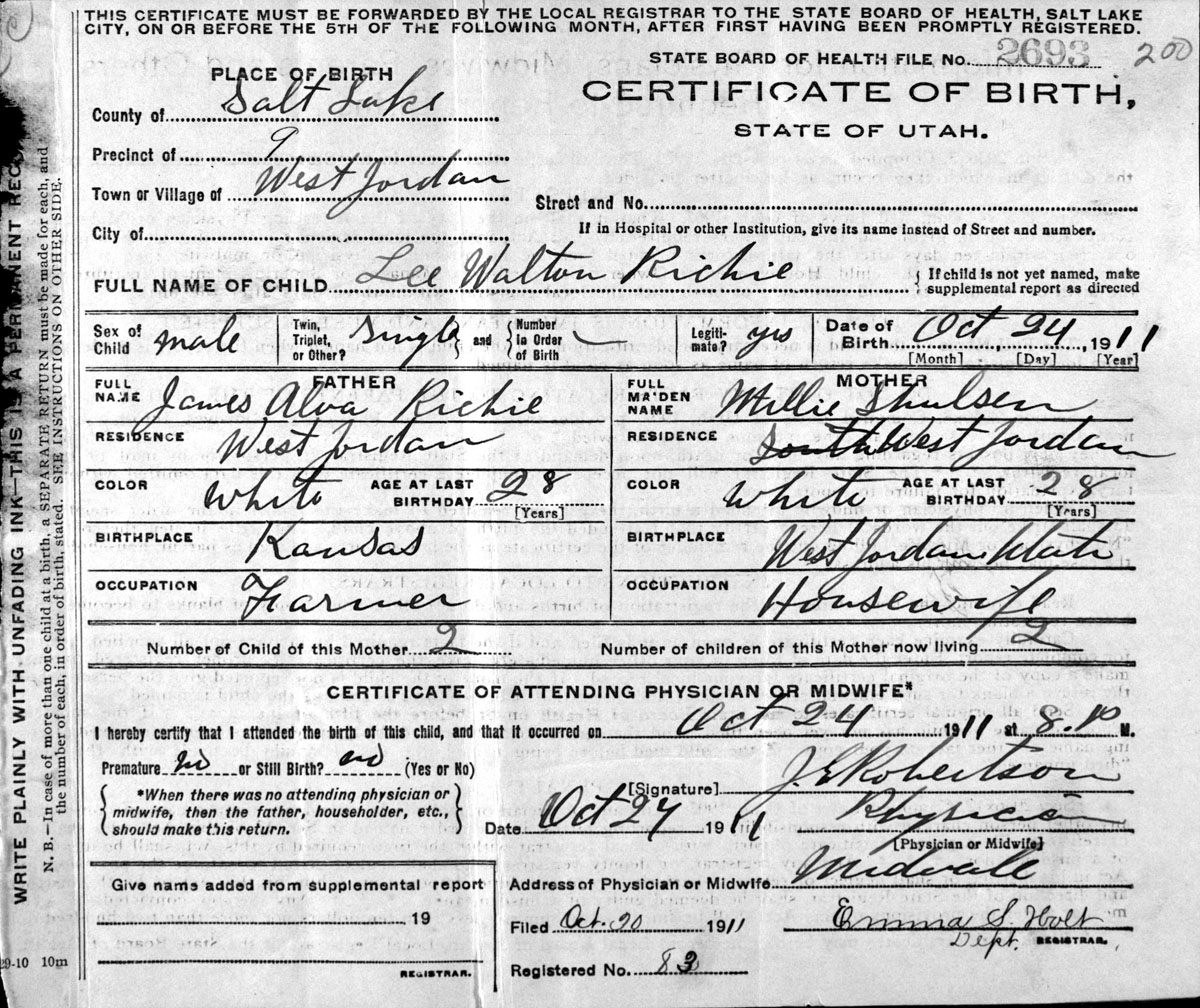 THIS CERTIFICATE MUST BE FORWARDED BY THE LOCAL REGISTRAR TO THE STATE BOARD OF HEALTH, SALT LAKE
CITY, ON OR BEFORE THE 5TH OF THE FOLLOWING MONTH, AFTER FIRST HAVING BEEN PROMPTLY REGISTERED.
STATE BOARD OF HEALTH FILE No. 2693 200
PLACE OF BIRTH
CERTIFICATE OF BIRTH,
STATE OF UTAH.
County of Salt Lake
Precinct of 9
Town or Village of West Jordan
Street and No.
City of
If in Hospital or other Institution, give its name instead of Street and number.
FULL NAME OF CHILD Lee Walton Richie { If child is not yet named, make supplemental report as directed
Sex of Child male Twin, Triplet, or Other? Single } and { Number in Order of Birth — Legitimate? yes Date of Birth Oct 24 1911
[Month] [Day] [Year]
FATHER
FULL NAME James Alva Richie
RESIDENCE West Jordan
COLOR White AGE AT LAST BIRTHDAY 28
[Years]
BIRTHPLACE Kansas
OCCUPATION Farmer
MOTHER
FULL MAIDEN NAME Millie Shulsen
RESIDENCE South West Jordan
COLOR White AGE AT LAST BIRTHDAY 28
[Years]
BIRTHPLACE West Jordan, Utah
OCCUPATION Housewife
Number of Child of this Mother 2 Number of children of this Mother now living 2
CERTIFICATE OF ATTENDING PHYSICIAN OR MIDWIFE*
I hereby certify that I attended the birth of this child, and that it occurred on Oct 24 1911 at 8.P M.
Premature no or Still Birth? no (Yes or No)
*When there was no attending physician or
midwife, then the father, householder, etc.,
should make this return.
[Signature] J. E. Robertson
Date Oct 24 1911 Physician
[Physician or Midwife]
Address of Physician or Midwife Midvale
Give name added from supplemental report
19
REGISTRAR.
Filed Oct. 30 1911 Emma S. Holt
Dept. REGISTRAR.
Registered No. 83
29-10 10m
WRITE PLAINLY WITH UNFADING INK—THIS IS A PERMANENT REC
N. B.—In case of more than one child at a birth, a SEPARATE RETURN must be made for each, and
the number of each, in order of birth, stated. SEE INSTRUCTIONS ON OTHER SIDE.